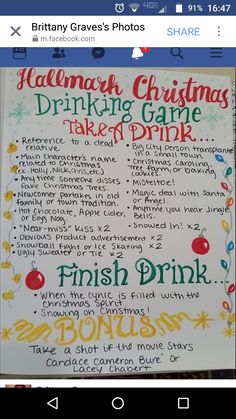 91% 16:47
Brittany Graves's Photos
m.facebook.com
SHARE
Hallmark Christmas
Drinking Game
Take A Drink...
• Reference to a dead relative
• Main Character's name related to Christmas (ex. Holly, Nick, Chris, etc.)
• Anytime someone disses fake Christmas Trees.
• Newcomer partakes in old family or town tradition.
• Hot Chocolate, Apple Cider, or Egg Nog
• "Near-miss" kiss x2
• Obvious Product advertisement x2
• Snowball Fight or Ice Skating x2
• Ugly Sweater or Tie x2
• Big City Person transplanted in a small town
• Christmas Caroling, Tree Farm, or baking cookies
• Mistletoe!
• Magic deal with Santa, or Angel.
• Anytime you hear Jingle Bells.
• Snowed In! x2
Finish Drink...
• When the cynic is filled with the Christmas Spirit
• Snowing on Christmas!
BONUS
Take a shot if the movie stars
Candace Cameron Bure or
Lacey Chabert